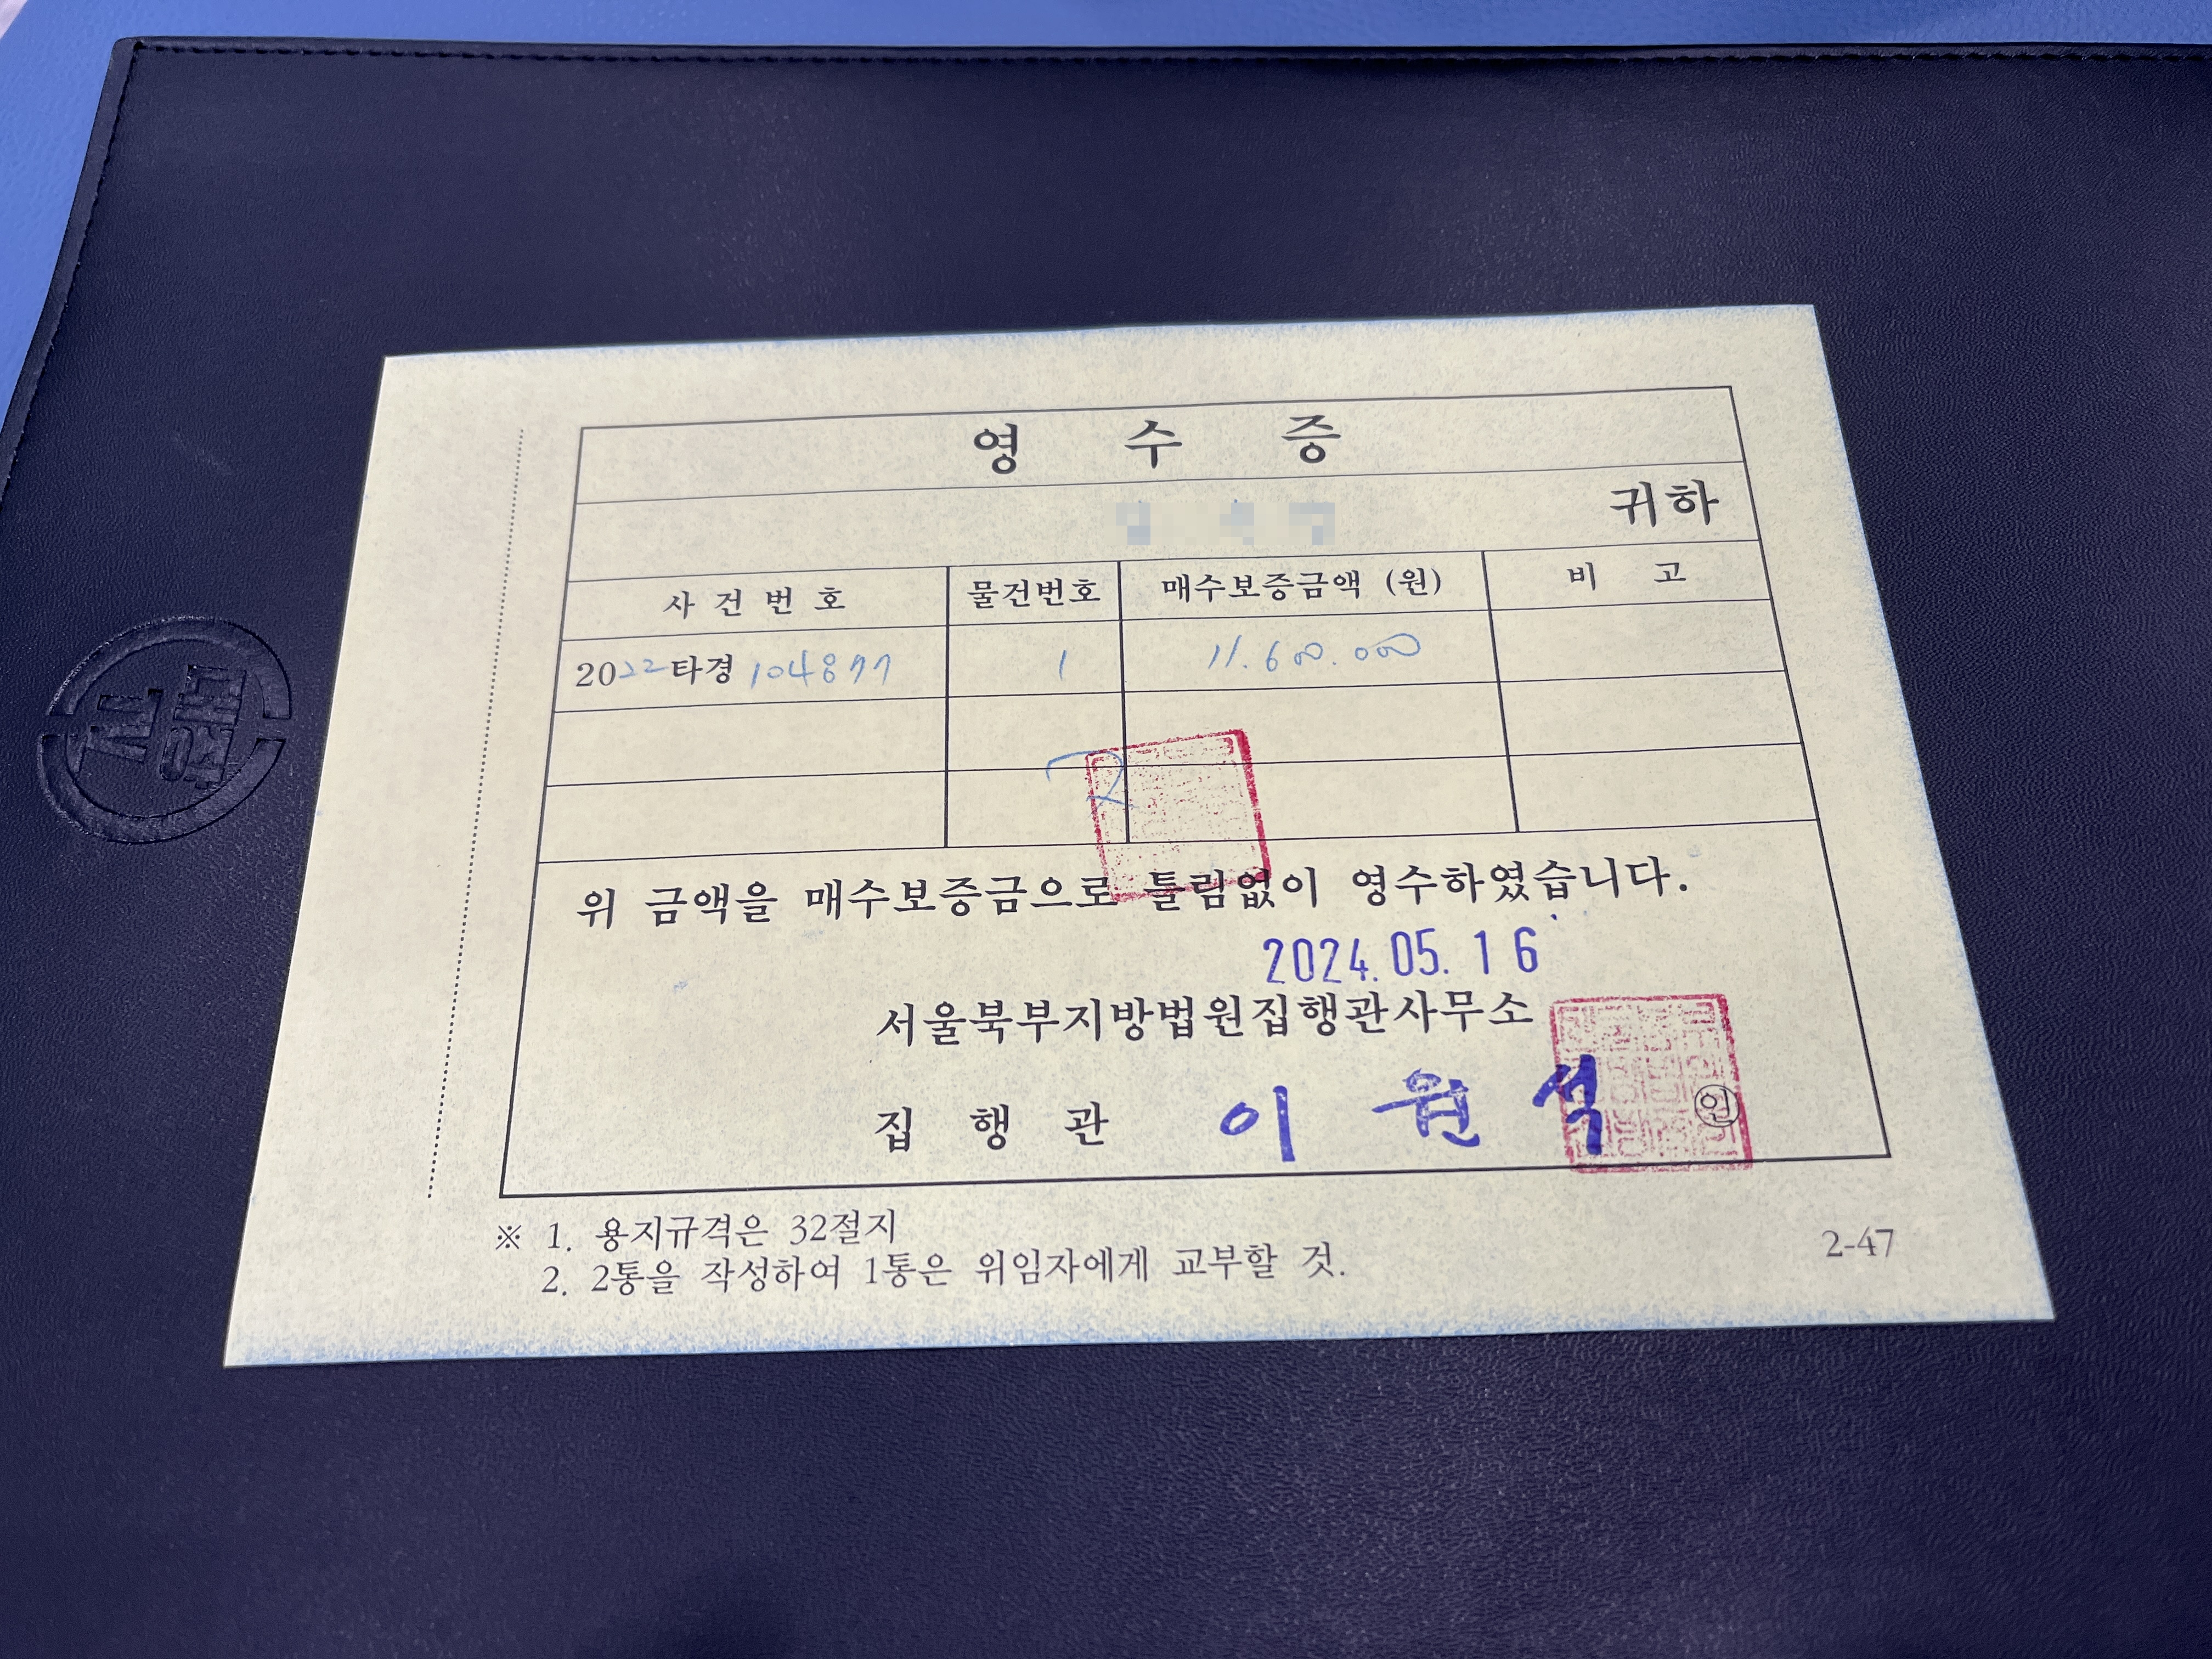 영 수 증
귀하
사 건 번 호 물건번호 매수보증금액 (원) 비 고
2022타경 104877 1 11.600.000
위 금액을 매수보증금으로 틀림없이 영수하였습니다.
2024.05.16
서울북부지방법원집행관사무소
집 행 관 이 원 석 인
※ 1. 용지규격은 32절지
2. 2통을 작성하여 1통은 위임자에게 교부할 것.
2-47